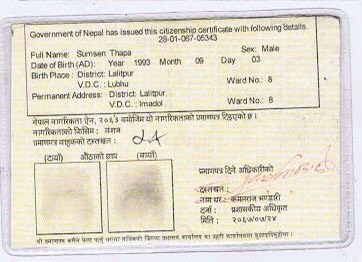 Government of Nepal has issued this citizenship certificate with following details.
28-01-067-05343
Full Name: Sumsen Thapa Sex: Male
Date of Birth (AD): Year 1993 Month 09 Day 03
Birth Place : District: Lalitpur
V.D.C. : Lubhu Ward No.: 8
Permanent Address: District: Lalitpur
V.D.C. : Imadol Ward No.: 8
नेपाल नागरिकता ऐन, २०६३ बमोजिम यो नागरिकताको प्रमाणपत्र दिइएको छ।
नागरिकताको किसिम : वंशज
प्रमाणपत्र वाहकको दस्तखत :
(दायाँ) औंठाको छाप (बायाँ)
प्रमाणपत्र दिने अधिकारीको
दस्तखत:
नाम थर: कमलराज भण्डारी
दर्जा : प्रशासकीय अधिकृत
मिति : २०६७/०७/२४